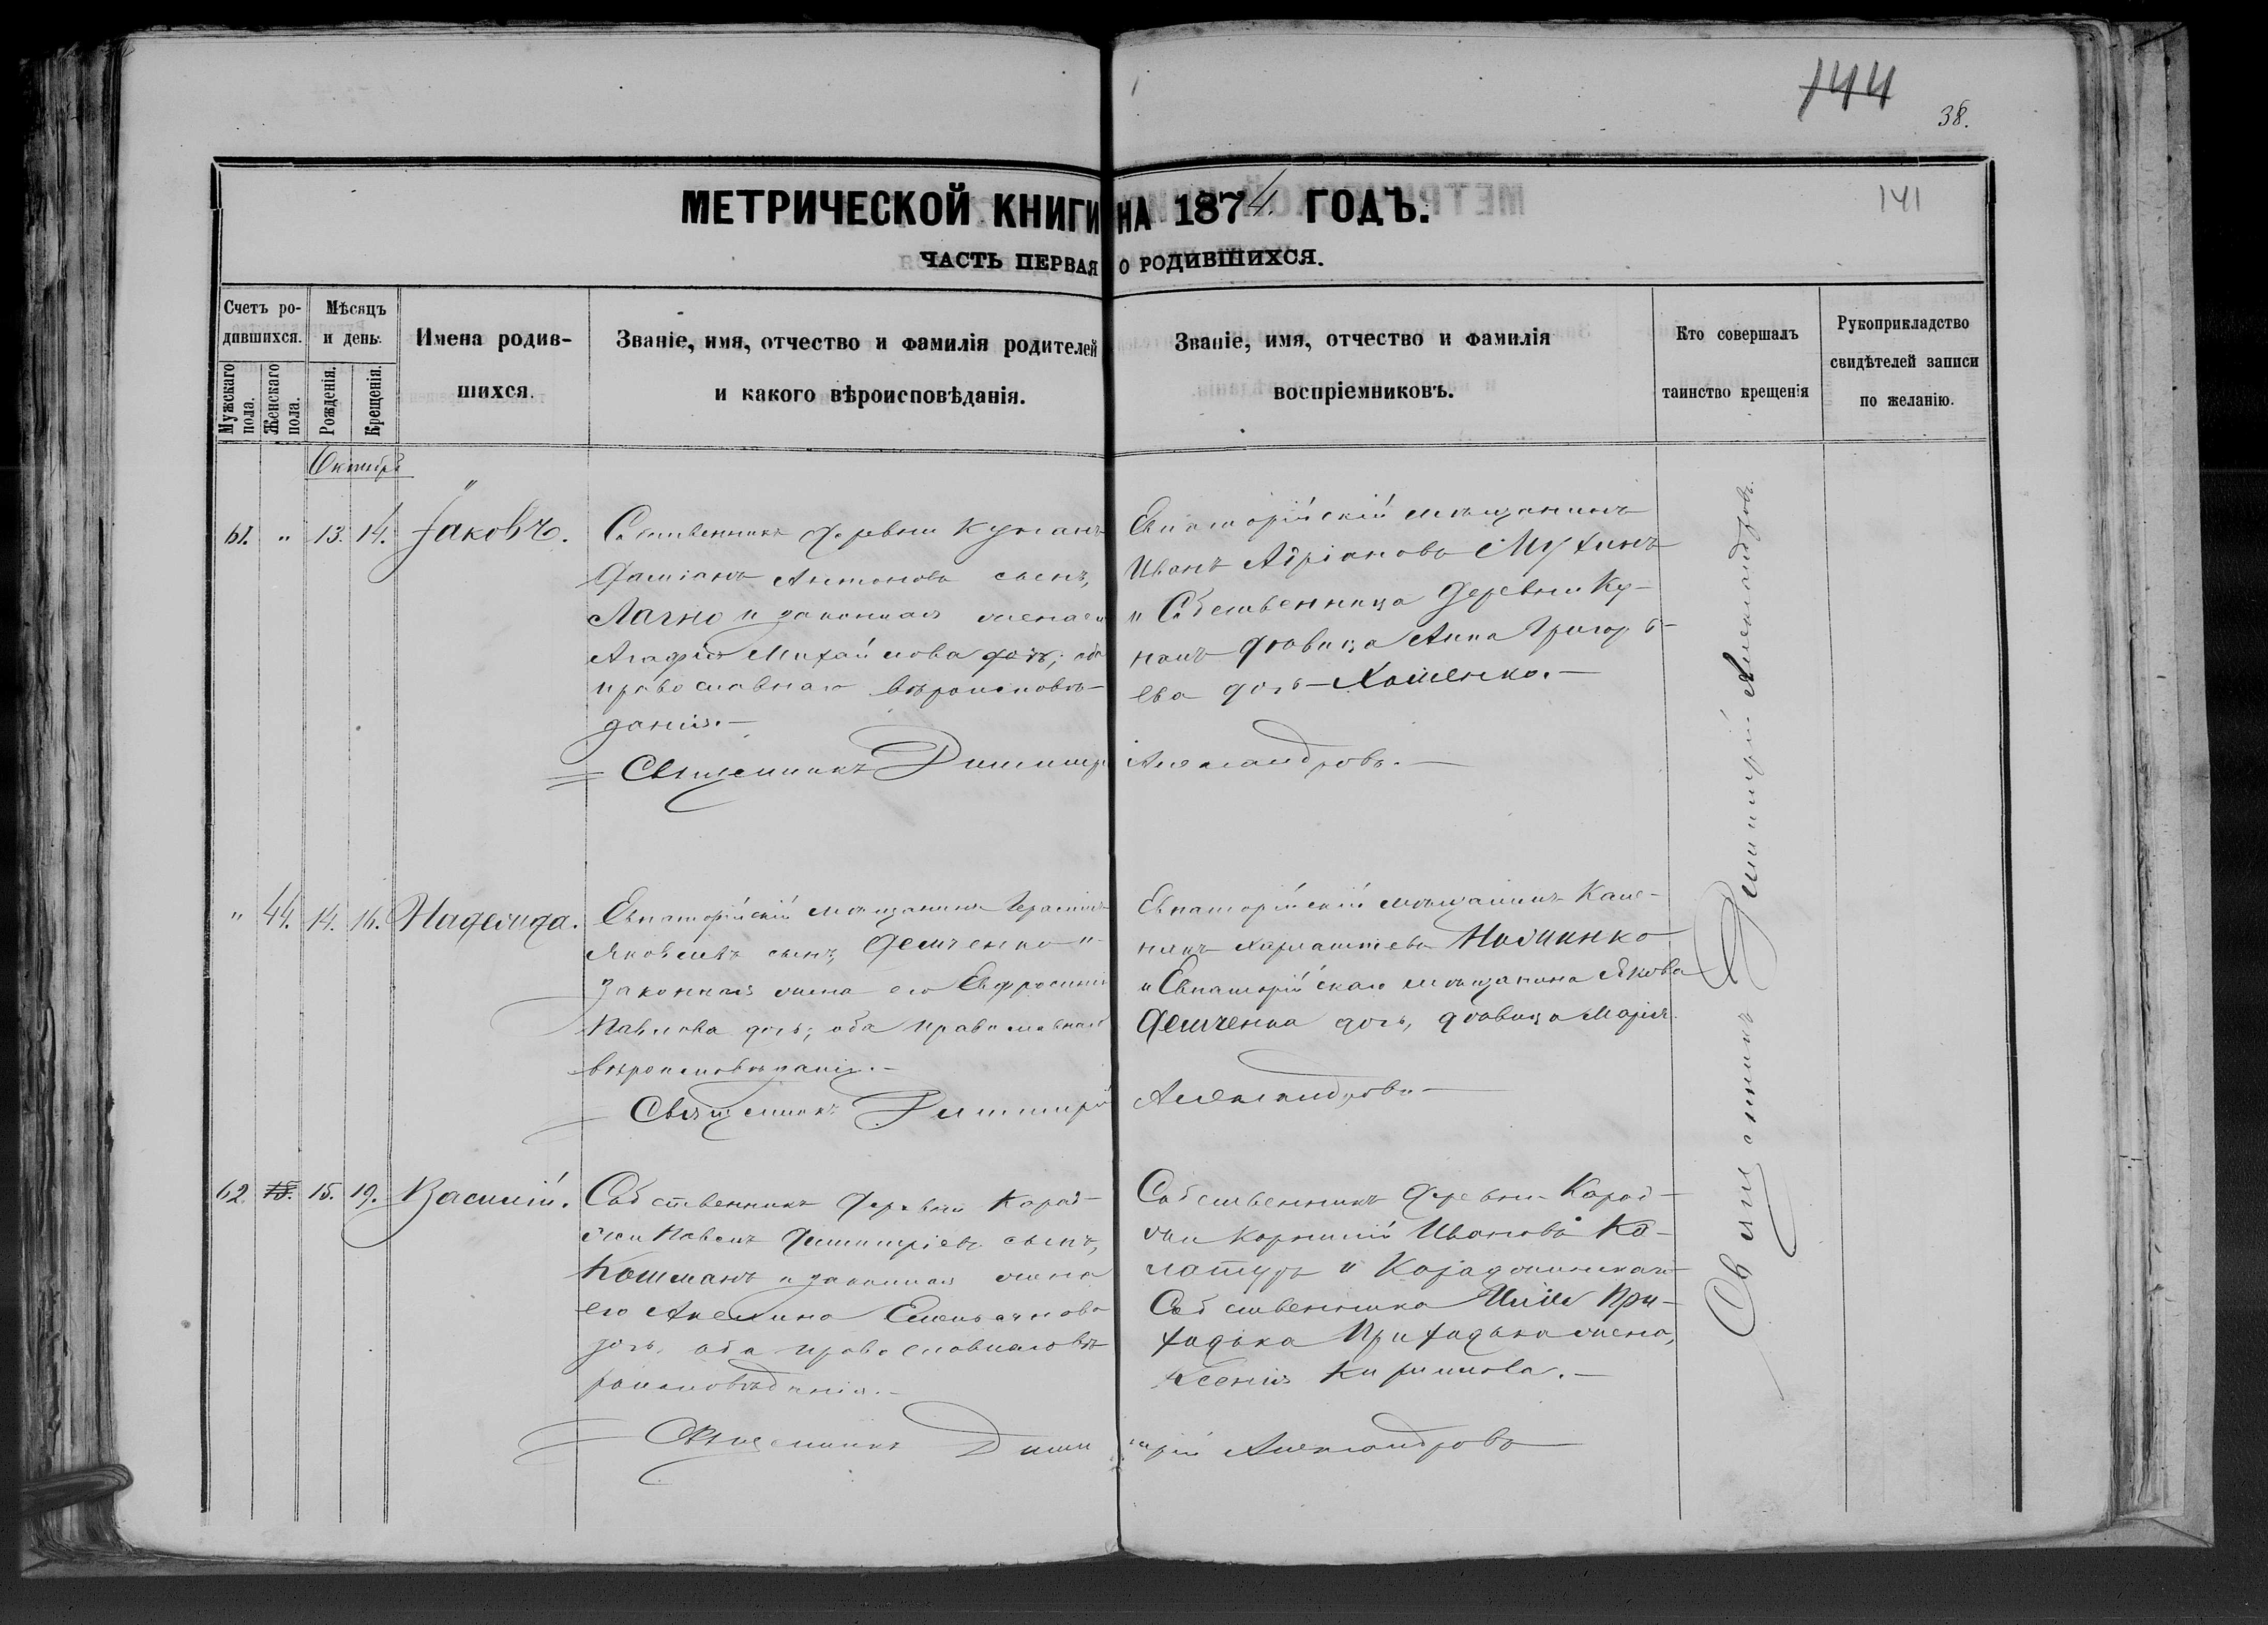 144
38.
141
МЕТРИЧЕСКОЙ КНИГИ НА 1874 ГОДЪ.
ЧАСТЬ ПЕРВАЯ О РОДИВШИХСЯ.
Счетъ родившихся.
Мужскаго пола.
Женскаго пола.
Мѣсяцъ и день.
Рожденія.
Крещенія.
Имена родив-
шихся.
Званіе, имя, отчество и фамилія родителей
и какого вѣроисповѣданія.
Званіе, имя, отчество и фамилія
воспріемниковъ.
Кто совершалъ
таинство крещенія
Рукоприкладство
свидѣтелей записи
по желанію.
Октябрь
61. " 13. 14. Іаковъ.
Собственникъ деревни
Даміанъ Антоновъ сынъ,
и законная жена его
Агафія Михайлова дочь; оба
православнаго вѣроисповѣ-
данія.—
Евпаторійскій мѣщанинъ
Иванъ Адріановъ Мухинъ
и Собственница деревни Ку-
дѣвица Анна Григорь-
ева дочь
Священникъ Димитрій Александровъ.—
" 44. 14. 16. Надежда.
Евпаторійскій мѣщанинъ Герасимъ
Яковлевъ сынъ, Демченко и
законная жена его Евфросинія
Павлова дочь; оба православнаго
вѣроисповѣданія.—
Евпаторійскій мѣщанинъ
и Евпаторійскаго мѣщанина Якова
Демченка дочь, дѣвица Марія.
Священникъ Димитрій Александровъ—
62. 45. 15. 19. Василій.
Собственникъ деревни Карад-
жи Павелъ Димитріевъ сынъ,
Кошманъ и законная жена
его Акелина Емельянова
дочь, оба православнаго вѣ-
роисповѣданія.—
Собственникъ деревни Карад-
жи Корнилій Ивановъ Ка-
и Караджинскаго
Собственника При-
ходька Приходька жена,
Ксенія Кирилова.—
Священникъ Димитрій Александровъ
Священникъ Димитрій Александровъ.